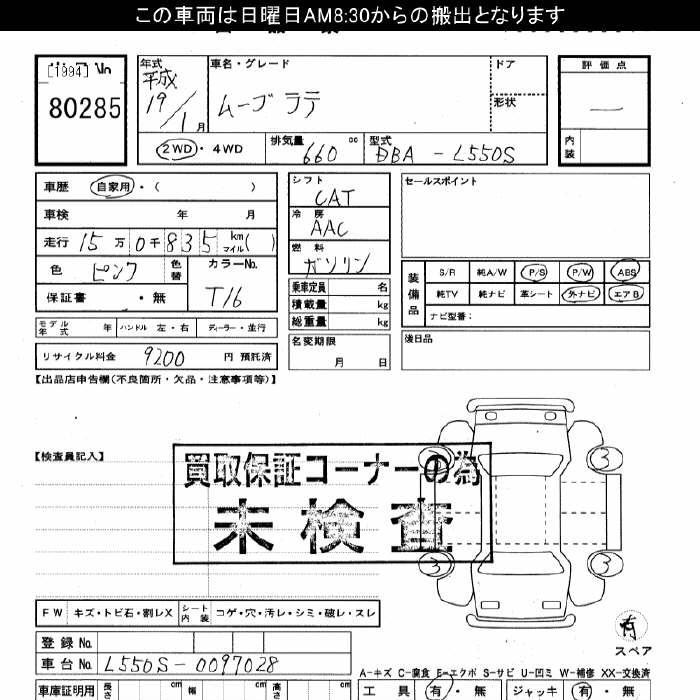 この車両は日曜日AM8:30からの搬出となります
[1994]
80285
年式
平成
19/1月
車名・グレード
ムーヴ ラテ
ドア
形状
評価点
―
内装
2WD・4WD
排気量
660 cc
型式
DBA - L550S
車歴 自家用・( )
車検 年 月
走行 15万0千835 km マイル( )
色 ピンク 色替
カラーNo.
T16
保証書 ・無
モデル年式 年 ハンドル 左・右 ディーラー・並行
リサイクル料金 9200 円 預託済
シフト
CAT
冷房
AAC
燃料
ガソリン
乗車定員 名
積載量 kg
総重量 kg
名変期限
月 日
セールスポイント
装備品
S/R 純A/W P/S P/W ABS
純TV 純ナビ 革シート 外ナビ エアB
ナビ型番:
後日品
【出品店申告欄(不良箇所・欠品・注意事項等)】
【検査員記入】
買取保証コーナーの為
未検査
3 3
3 3
有
スペア
FW キズ・トビ石・割レX シート内装 コゲ・穴・汚レ・シミ・破レ・スレ
登録No.
車台No. L550S-0097028
A-キズ C-腐食 E-エクボ S-サビ U-凹ミ W-補修 XX-交換済
車庫証明用 長さ cm 幅 cm 高さ cm
工具 有・無 ジャッキ 有・無